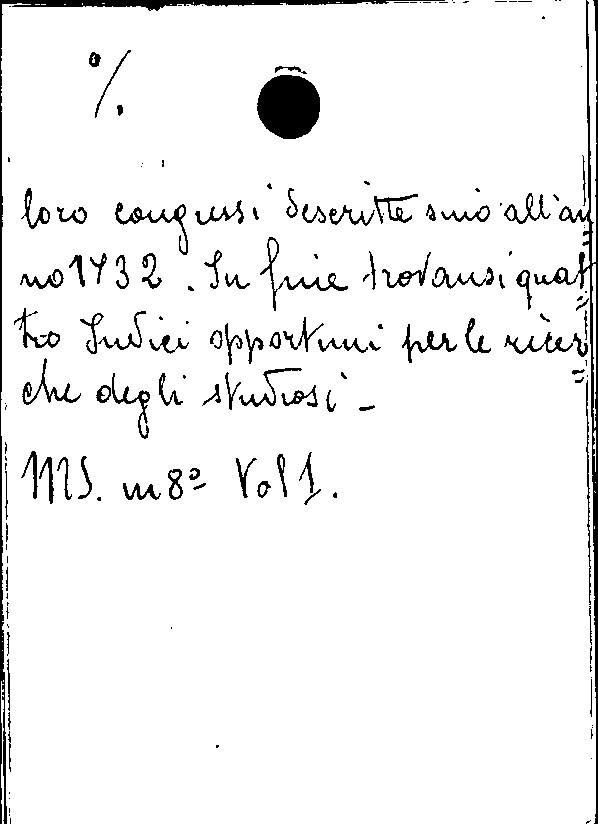 %.
loro congressi descritte sino all'an=
no 1732. In fine trovansi quat=
tro Indici opportuni per le ricer=
che degli studiosi -
MS. in 8º Vol 1.